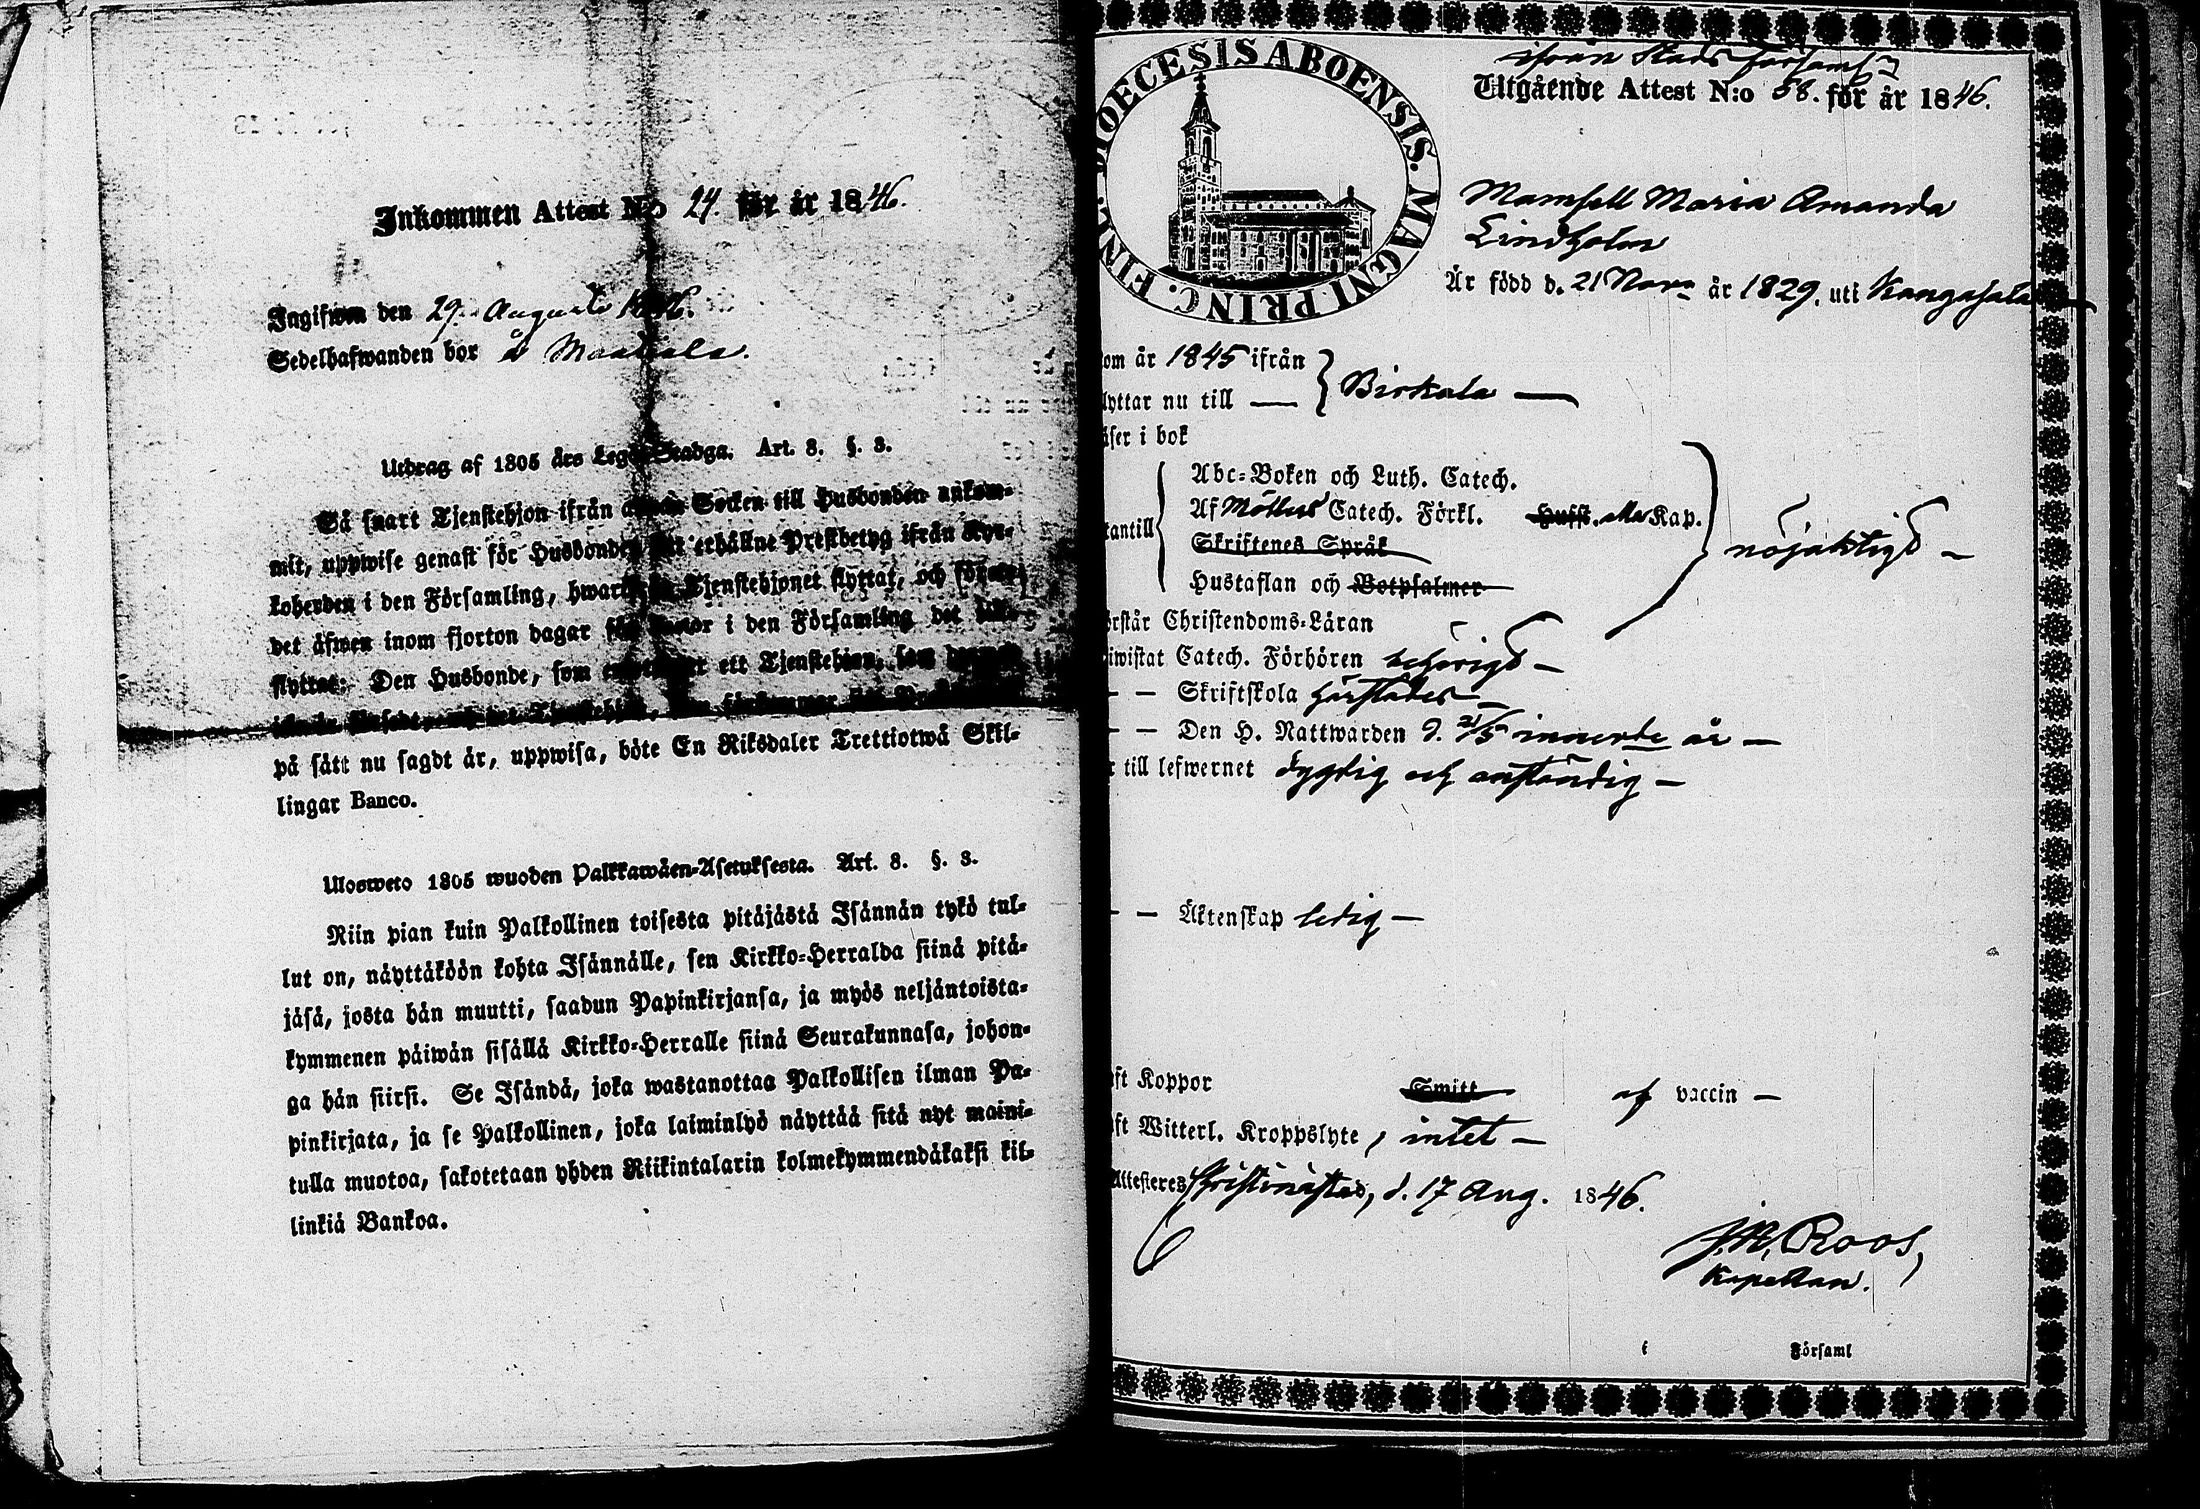 Inkommen Attest N:o 24. för år 1846.
Ingifwen den 29. Augusti 1846.
Sedelhafwanden bor å
Utdrag af 1805 års Lego-Stadga. Art. 8. §. 3.
Så snart Tjenstehjon ifrån annan Socken till Husbonden ankom-
mit, uppwise genast för Husbonden erhållne Prestbetyg ifrån Kyr-
koherden i den Församling, hwarifrån Tjenstehjonet flyttat, och
det äfwen inom fjorton dagar för Pastor i den Församling det
flyttat: Den Husbonde, som ett Tjenstehjon,
på sätt nu sagdt är, uppwisa, böte En Riksdaler Trettiotwå Skil-
lingar Banco.
Ulosweto 1805 wuoden Palkkawäen-Asetuksesta. Art. 8. §. 3.
Niin pian kuin Palkollinen toisesta pitäjästä Isännän tykö tul-
lut on, näyttäköön kohta Isännälle, sen Kirkko-Herralda siinä pitä-
jäsä, josta hän muutti, saadun Papinkirjansa, ja myös neljäntoista-
kymmenen päiwän sisällä Kirkko-Herralle siinä Seurakunnasa, johon-
ga hän siirsi. Se Isändä, joka wastanottaa Palkollisen ilman Pa-
pinkirjata, ja se Palkollinen, joka laiminlyö näyttää sitä nyt maini-
tulla muotoa, sakotetaan yhden Riikintalarin kolmekymmendäkaksi kil-
linkiä Bankoa.
DIOECESIS ABOENSIS. MAGNI PRINC. FINL.
ifrån Stads Församl
Utgående Attest N:o 58. för år 1846.
Mamsell Maria Amanda
Lindholm
Är född d. 21 Nov. år 1829. uti Kangasala
om år 1845 ifrån
lyttar nu till — Birkala —
äser i bok
Abc-Boken och Luth. Catech.
Af Catech. Förkl. Hufst. alla Kap.
Skriftenes Språk
tantill
Hustaflan och Botpsalmer
nöjaktigt —
örstår Christendoms-Läran
iwistat Catech. Förhören behörigt —
— Skriftskola härstädes —
— — Den H. Nattwarden d. 21/5 innevde år —
r till lefwernet dygdig och anständig —
— — Äktenskap ledig —
ft Koppor Smitt af vaccin —
ft Witterl. Kroppslyte, intet —
Attesteres Christinæstad, d. 17 Aug. 1846.
Roos,
Kapellan.
i Församl